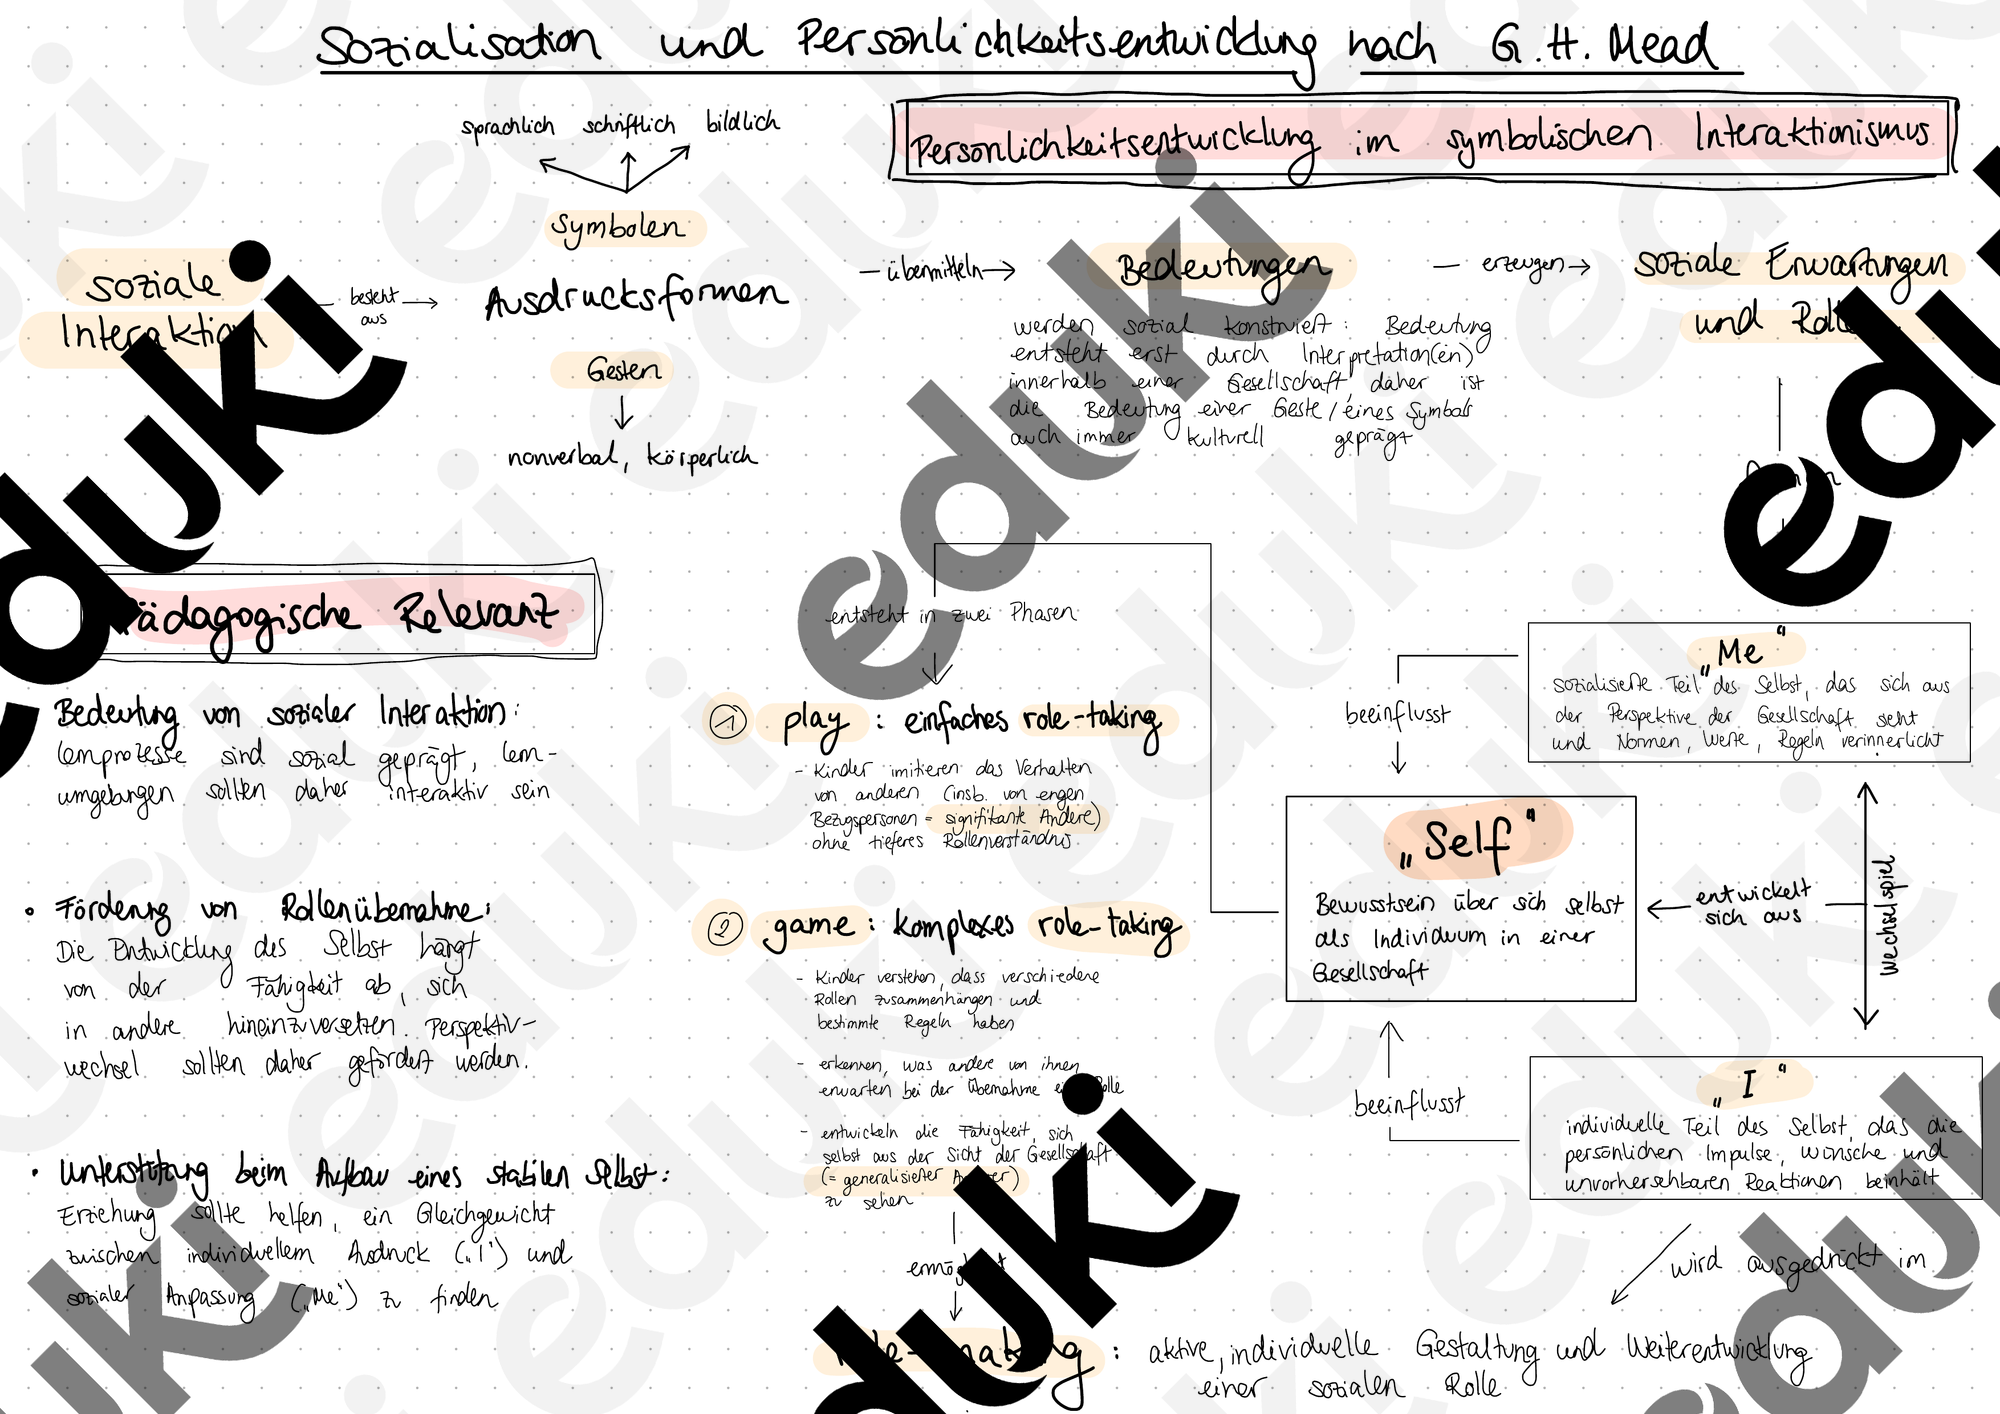 Sozialisation und Persönlichkeitsentwicklung nach G.H. Mead
Persönlichkeitsentwicklung im symbolischen Interaktionismus
sprachlich schriftlich bildlich
Symbolen
soziale
Interaktion
besteht
aus
Ausdrucksformen
Gesten
nonverbal, körperlich
übermitteln
Bedeutungen
werden sozial konstruiert: Bedeutung
entsteht erst durch Interpretation(en)
innerhalb einer Gesellschaft, daher ist
die Bedeutung einer Geste / eines Symbols
auch immer kulturell geprägt
erzeugen
soziale Erwartungen
und
"Me"
sozialisierte Teil des Selbst, das sich aus
der Perspektive der Gesellschaft sieht
und Normen, Werte, Regeln verinnerlicht
beeinflusst
"Self"
Bewusstsein über sich selbst
als Individuum in einer
Gesellschaft
entwickelt
sich aus
Wechselspiel
"I"
individuelle Teil des Selbst, das die
persönlichen Impulse, Wünsche und
unvorhersehbaren Reaktionen beinhält
beeinflusst
wird ausgedrückt im
entsteht in zwei Phasen
1 play : einfaches role-taking
- Kinder imitieren das Verhalten
von anderen (insb. von engen
Bezugspersonen = signifikante Andere)
ohne tieferes Rollenverständnis
2 game : komplexes role-taking
- Kinder verstehen, dass verschiedene
Rollen zusammenhängen und
bestimmte Regeln haben
- erkennen, was andere von ihnen
erwarten bei der Übernahme
- entwickeln die Fähigkeit, sich
selbst aus der Sicht der Gesellschaft
(= generalisierter
zu sehen
: aktive, individuelle Gestaltung und Weiterentwicklung
einer sozialen Rolle
Pädagogische Relevanz
Bedeutung von sozialer Interaktion:
Lernprozesse sind sozial geprägt, Lern-
umgebungen sollten daher interaktiv sein
• Förderung von Rollenübernahme:
Die Entwicklung des Selbst hängt
von der Fähigkeit ab, sich
in andere hineinzuversetzen. Perspektiv-
wechsel sollten daher gefördert werden.
• Unterstützung beim Aufbau eines stabilen Selbst:
Erziehung sollte helfen, ein Gleichgewicht
zwischen individuellem Ausdruck ("I") und
sozialer Anpassung ("Me") zu finden
eduki
eduki
eduki
eduki